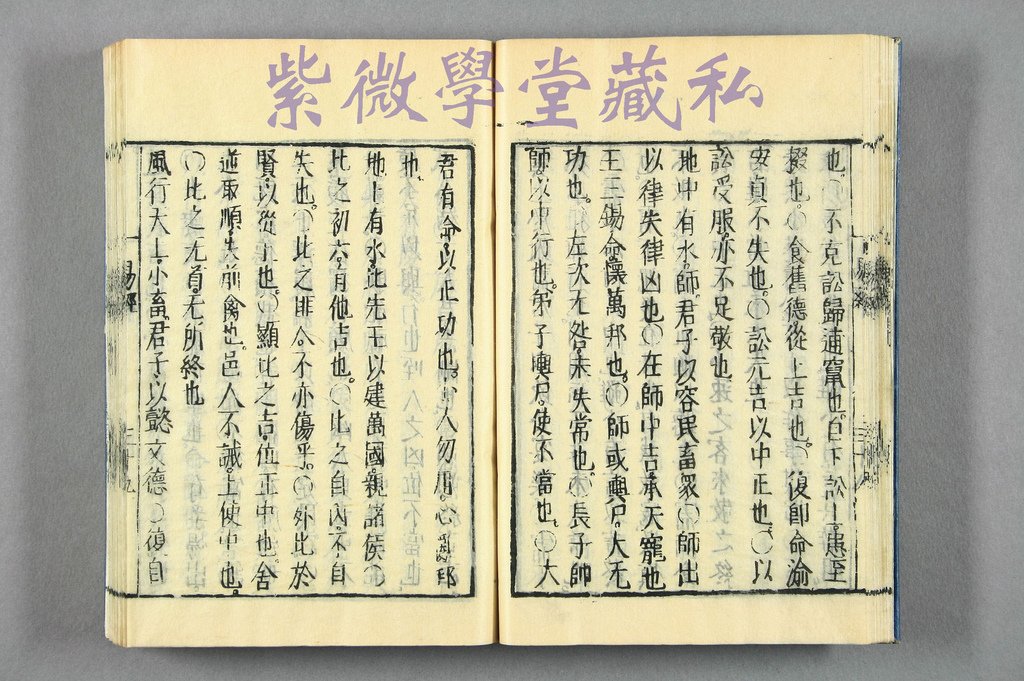 紫微學堂藏私
也。○不克訟歸逋竄也。自下訟上。患至
掇也。○食舊德從上吉也。○復卽命渝
安貞不失也。○訟元吉以中正也。○以
訟受服。亦不足敬也
地中有水。師。君子以容民畜眾。○師出
以律失律凶也。○在師中吉。承天寵也
王三錫命。懷萬邦也。○師或輿尸。大无
功也。○左次无咎。未失常也。○長子帥
師。以中行也。弟子輿尸。使不當也。○大
君有命。以正功也。小人勿用。必亂邦
也。
地上有水。比。先王以建萬國。親諸侯。○
比之初六。有他吉也。○比之自內。不自
失也。○比之匪人。不亦傷乎。○外比於
賢。以從上也。○顯比之吉。位正中也。舍
逆取順。失前禽也。邑人不誡。上使中也。
○比之无首。无所終也
風行天上。小畜。君子以懿文德○復自
易經